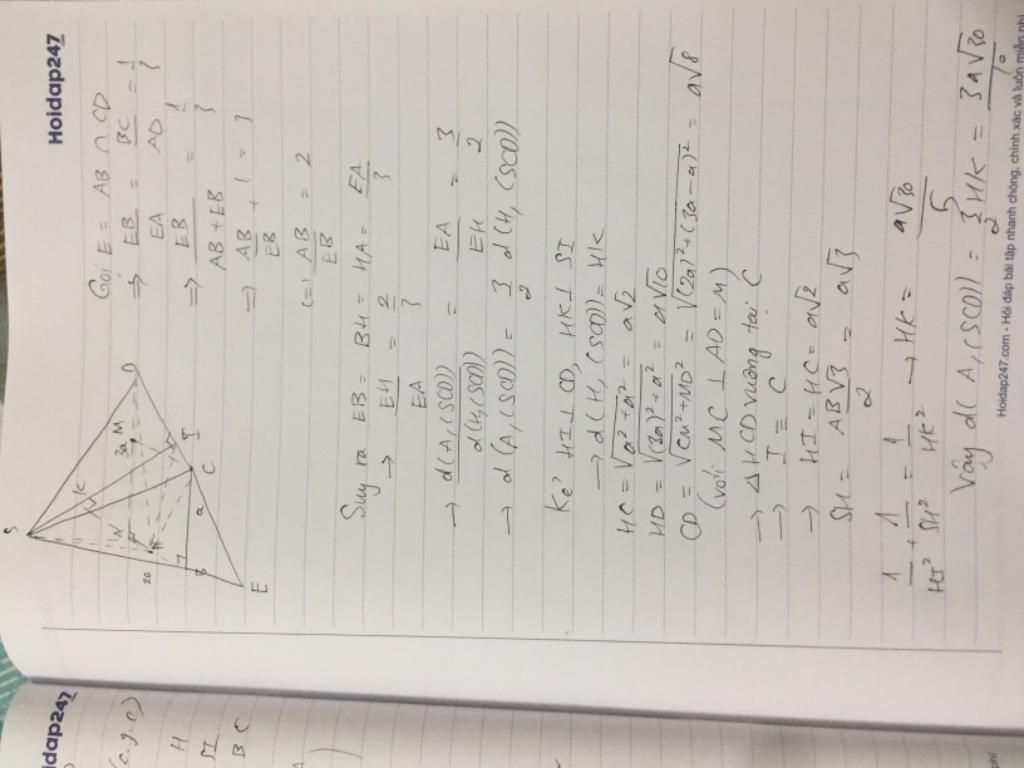 Hoidap247
Gọi E = AB ∩ CD
⇒ EB/EA = BC/AD = 1/3
⇒ EB/(AB + EB) = 1/3
⇒ AB/EB + 1 = 3
(=) AB/EB = 2
Suy ra EB = BH = HA = EA/3
→ EH/EA = 2/3
→ d(A,(SCD))/d(H,(SCD)) = EA/EH = 3/2
→ d(A,(SCD)) = 3/2 d(H,(SCD))
Kẻ HI ⊥ CD, HK ⊥ SI
→ d(H,(SCD)) = HK
HC = √(a² + a²) = a√2
HD = √((3a)² + a²) = a√10
CD = √(CM² + MD²) = √((2a)² + (3a - a)²) = a√8
(với MC ⊥ AD = M)
→ ΔHCD vuông tại C
→ I ≡ C
→ HI = HC = a√2
SH = AB√3/2 = a√3
1/HI² + 1/SH² = 1/HK² → HK = a√30/5
Vậy d(A,(SCD)) = 3/2 HK = 3a√30/10
Hoidap247.com - Hỏi đáp bài tập nhanh chóng, chính xác và luôn miễn phí
S
K
N
3a M
D
2a
H
I
B
a
C
E
idap247
(c.g.c)
H
SI
BC
phí